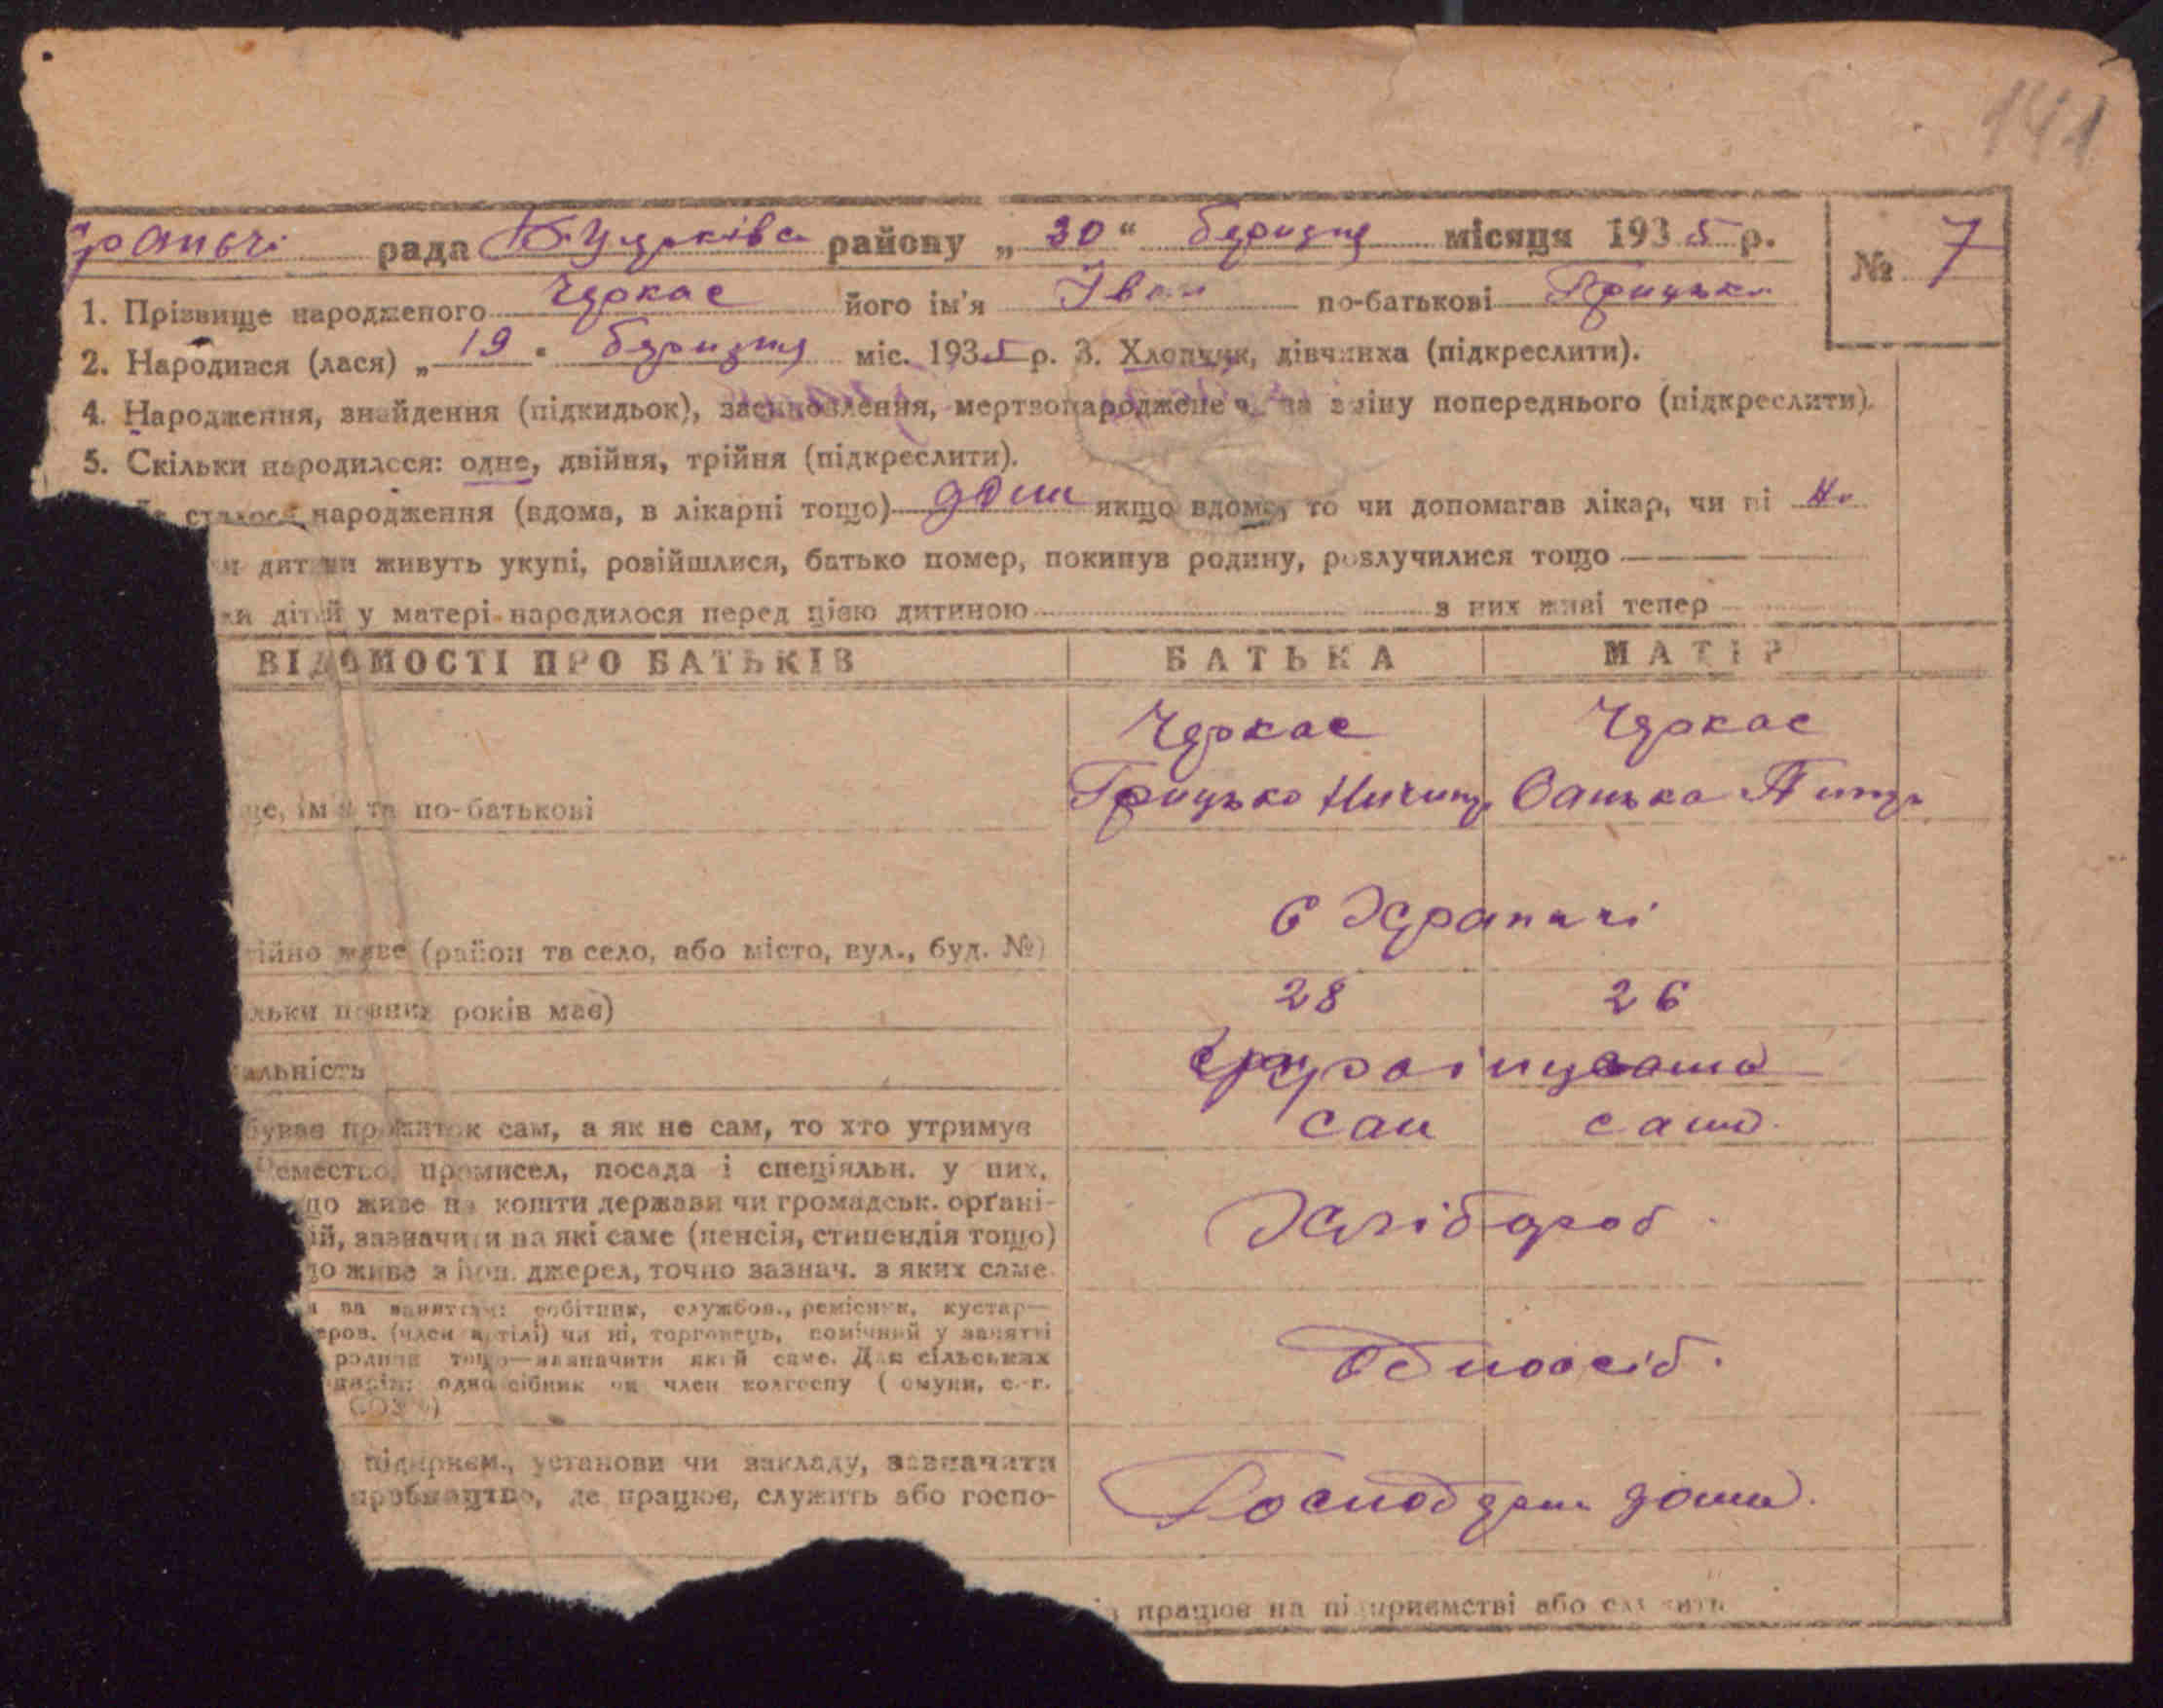 141
раньчі рада района „ 30 “ березня місяця 1935 р. № 7
1. Прізвище народженого Черкас його ім'я Іван по-батькові Грицьк
2. Народився (лася) „ 19 " березня міс. 1935 р. 3. Хлопчик, дівчинка (підкреслити).
4. Народження, знайдення (підкидьок), засиновлення, мертвонароджене на зміну попереднього (підкреслити).
5. Скільки народилося: одне, двійня, трійня (підкреслити).
сталося народження (вдома, в лікарні тощо) дома якщо вдома, то чи допомагав лікар, чи ні
дитини живуть укупі, розійшлися, батько помер, покинув родину, розлучилися тощо
ки дітей у матері народилося перед цією дитиною з них живі тепер
ВІДОМОСТІ ПРО БАТЬКІВ БАТЬКА МАТІР
Черкас Черкас
ще, ім'я та по-батькові Грицько Ничип
тійно живе (район та село, або місто, вул., буд. №)
льки повних років має) 28 26
альність
буває прожиток сам, а як не сам, то хто утримує сам сама
ремество, промисел, посада і спеціяльн. у них,
що живе на кошти держави чи громадськ. орґані-
ій, зазначити на які саме (пенсія, стипендія тощо) Хлібороб
що живе з інш. джерел, точно зазнач. з яких саме.
я за заняттям: робітник, службов., ремісник, кустар—
(член артілі) чи ні, торговець, помічний у занятті
родини тощо—зазначити якій саме. Для сільських Одноосіб.
одноосібник чи член колгоспу ( омуни, с.-г.
СОЗ )
підприєм., установи чи закладу, зазначити
де працює, служить або госпо- дома.
працює на підприємстві або служить